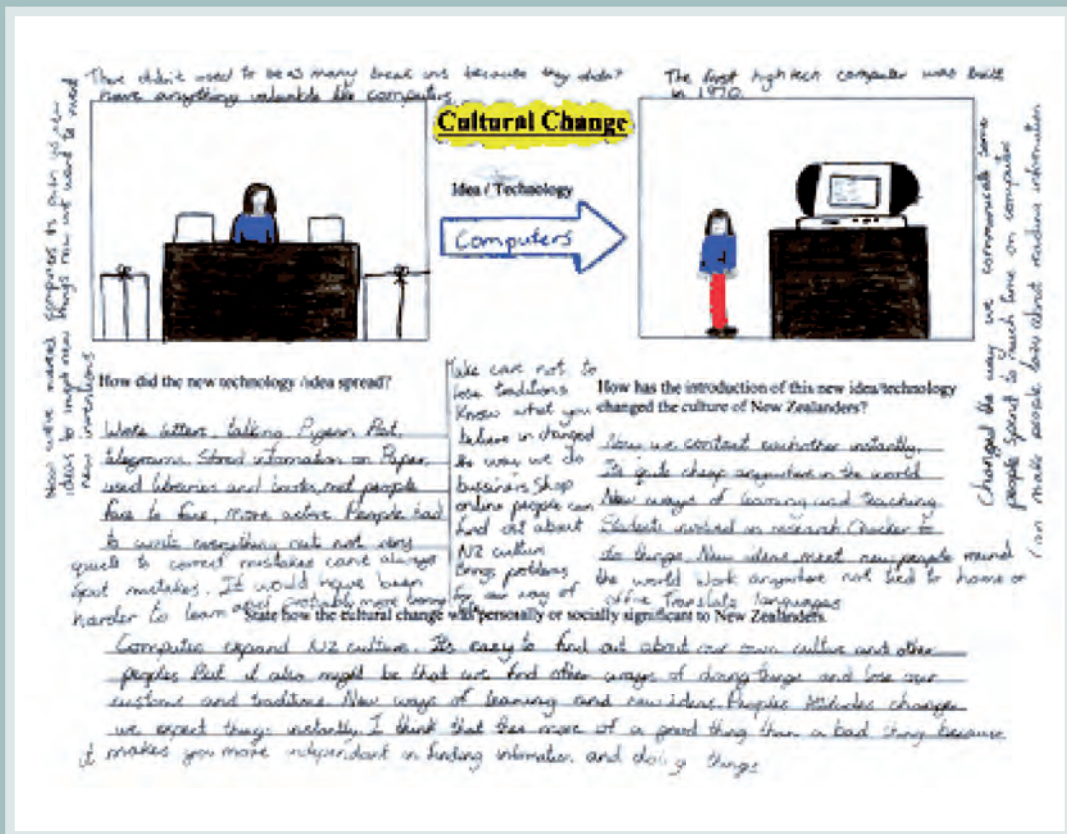 There didn't used to be as many break ins because they didn't
have anything valuable like computers.
The first high tech computer was built
in 1970.
Cultural Change
Idea / Technology
Computers
Now we've needed computers to put in new
ideas to invent new things now we want to need
new inventions
Changed the way we communicate some
people spend to much time on computers
Can make people lazy about reading information
How did the new technology /idea spread?
Wrote letters, talking Pigeon Post,
telegrams. Stored information on Paper,
used libraries and books, met people
face to face, more active. People had
to write everything out not very
quick to correct mistakes cant always
spot mistakes. It would have been
harder to learn and probably more boring
Take care not to
lose traditions
Know what you
believe in changed
the way we do
bussiness Shop
online people can
find out about
NZ culture
Brings problems
for our way of
How has the introduction of this new idea/technology
changed the culture of New Zealanders?
Now we contact eachother instantly.
Its quite cheap anywhere in the world
New ways of learning and teaching
Students involved in research Quicker to
do things. New ideas, meet new people round
the world Work anywhere not tied to home or
office Translate languages
State how the cultural change was personally or socially significant to New Zealanders.
Computers expand NZ culture. Its easy to find out about our own culture and other
peoples But it also might be that we find other ways of doing things and lose our
customs and traditions. New ways of learning and new ideas. Peoples attitudes changes
we expect things instantly. I think that this more of a good thing than a bad thing because
it makes you more independant in finding information and doing things